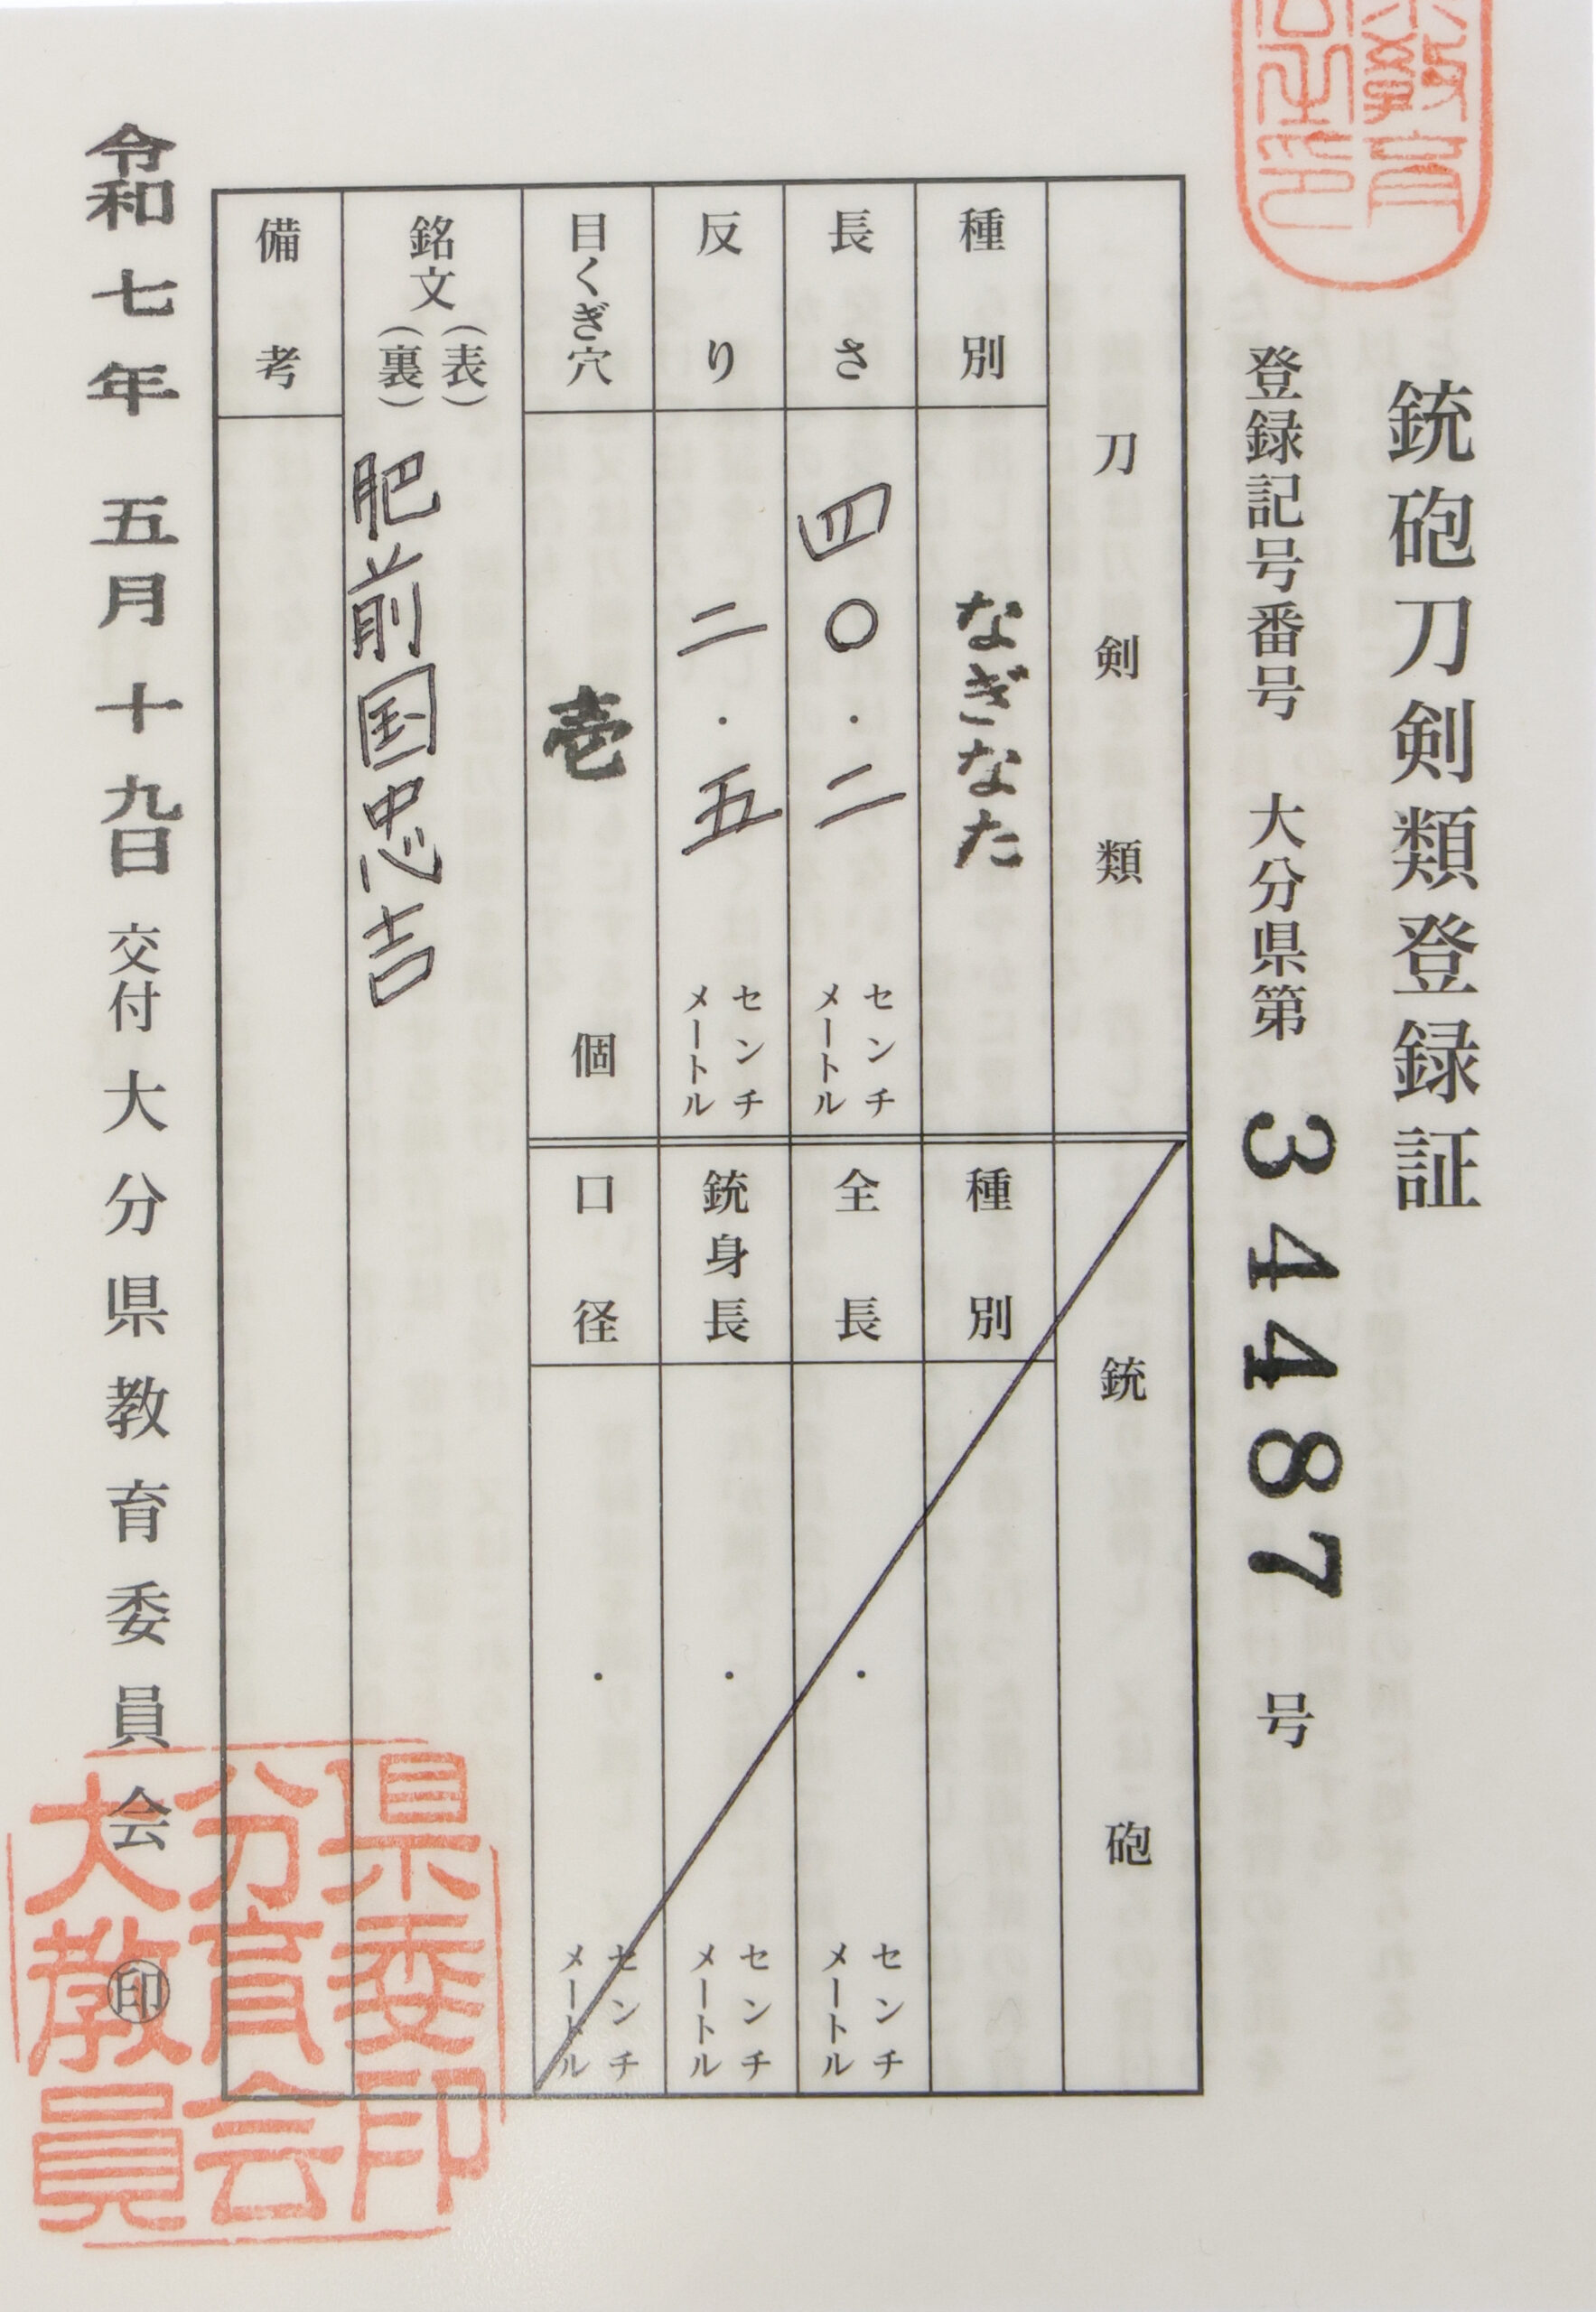 銃砲刀剣類登録証
登録記号番号 大分県第 34487 号
刀剣類
種別 なぎなた
長さ 四〇.二 センチメートル
反り 二.五 センチメートル
目くぎ穴 壱 個
銃砲
種別
全長 . センチメートル
銃身長 . センチメートル
口径 . センチメートル
銘文 (表)
(裏) 肥前国忠吉
備考
令和七年 五月十九日 交付 大分県教育委員会 ㊞
県委印
分育会
大教員
教育